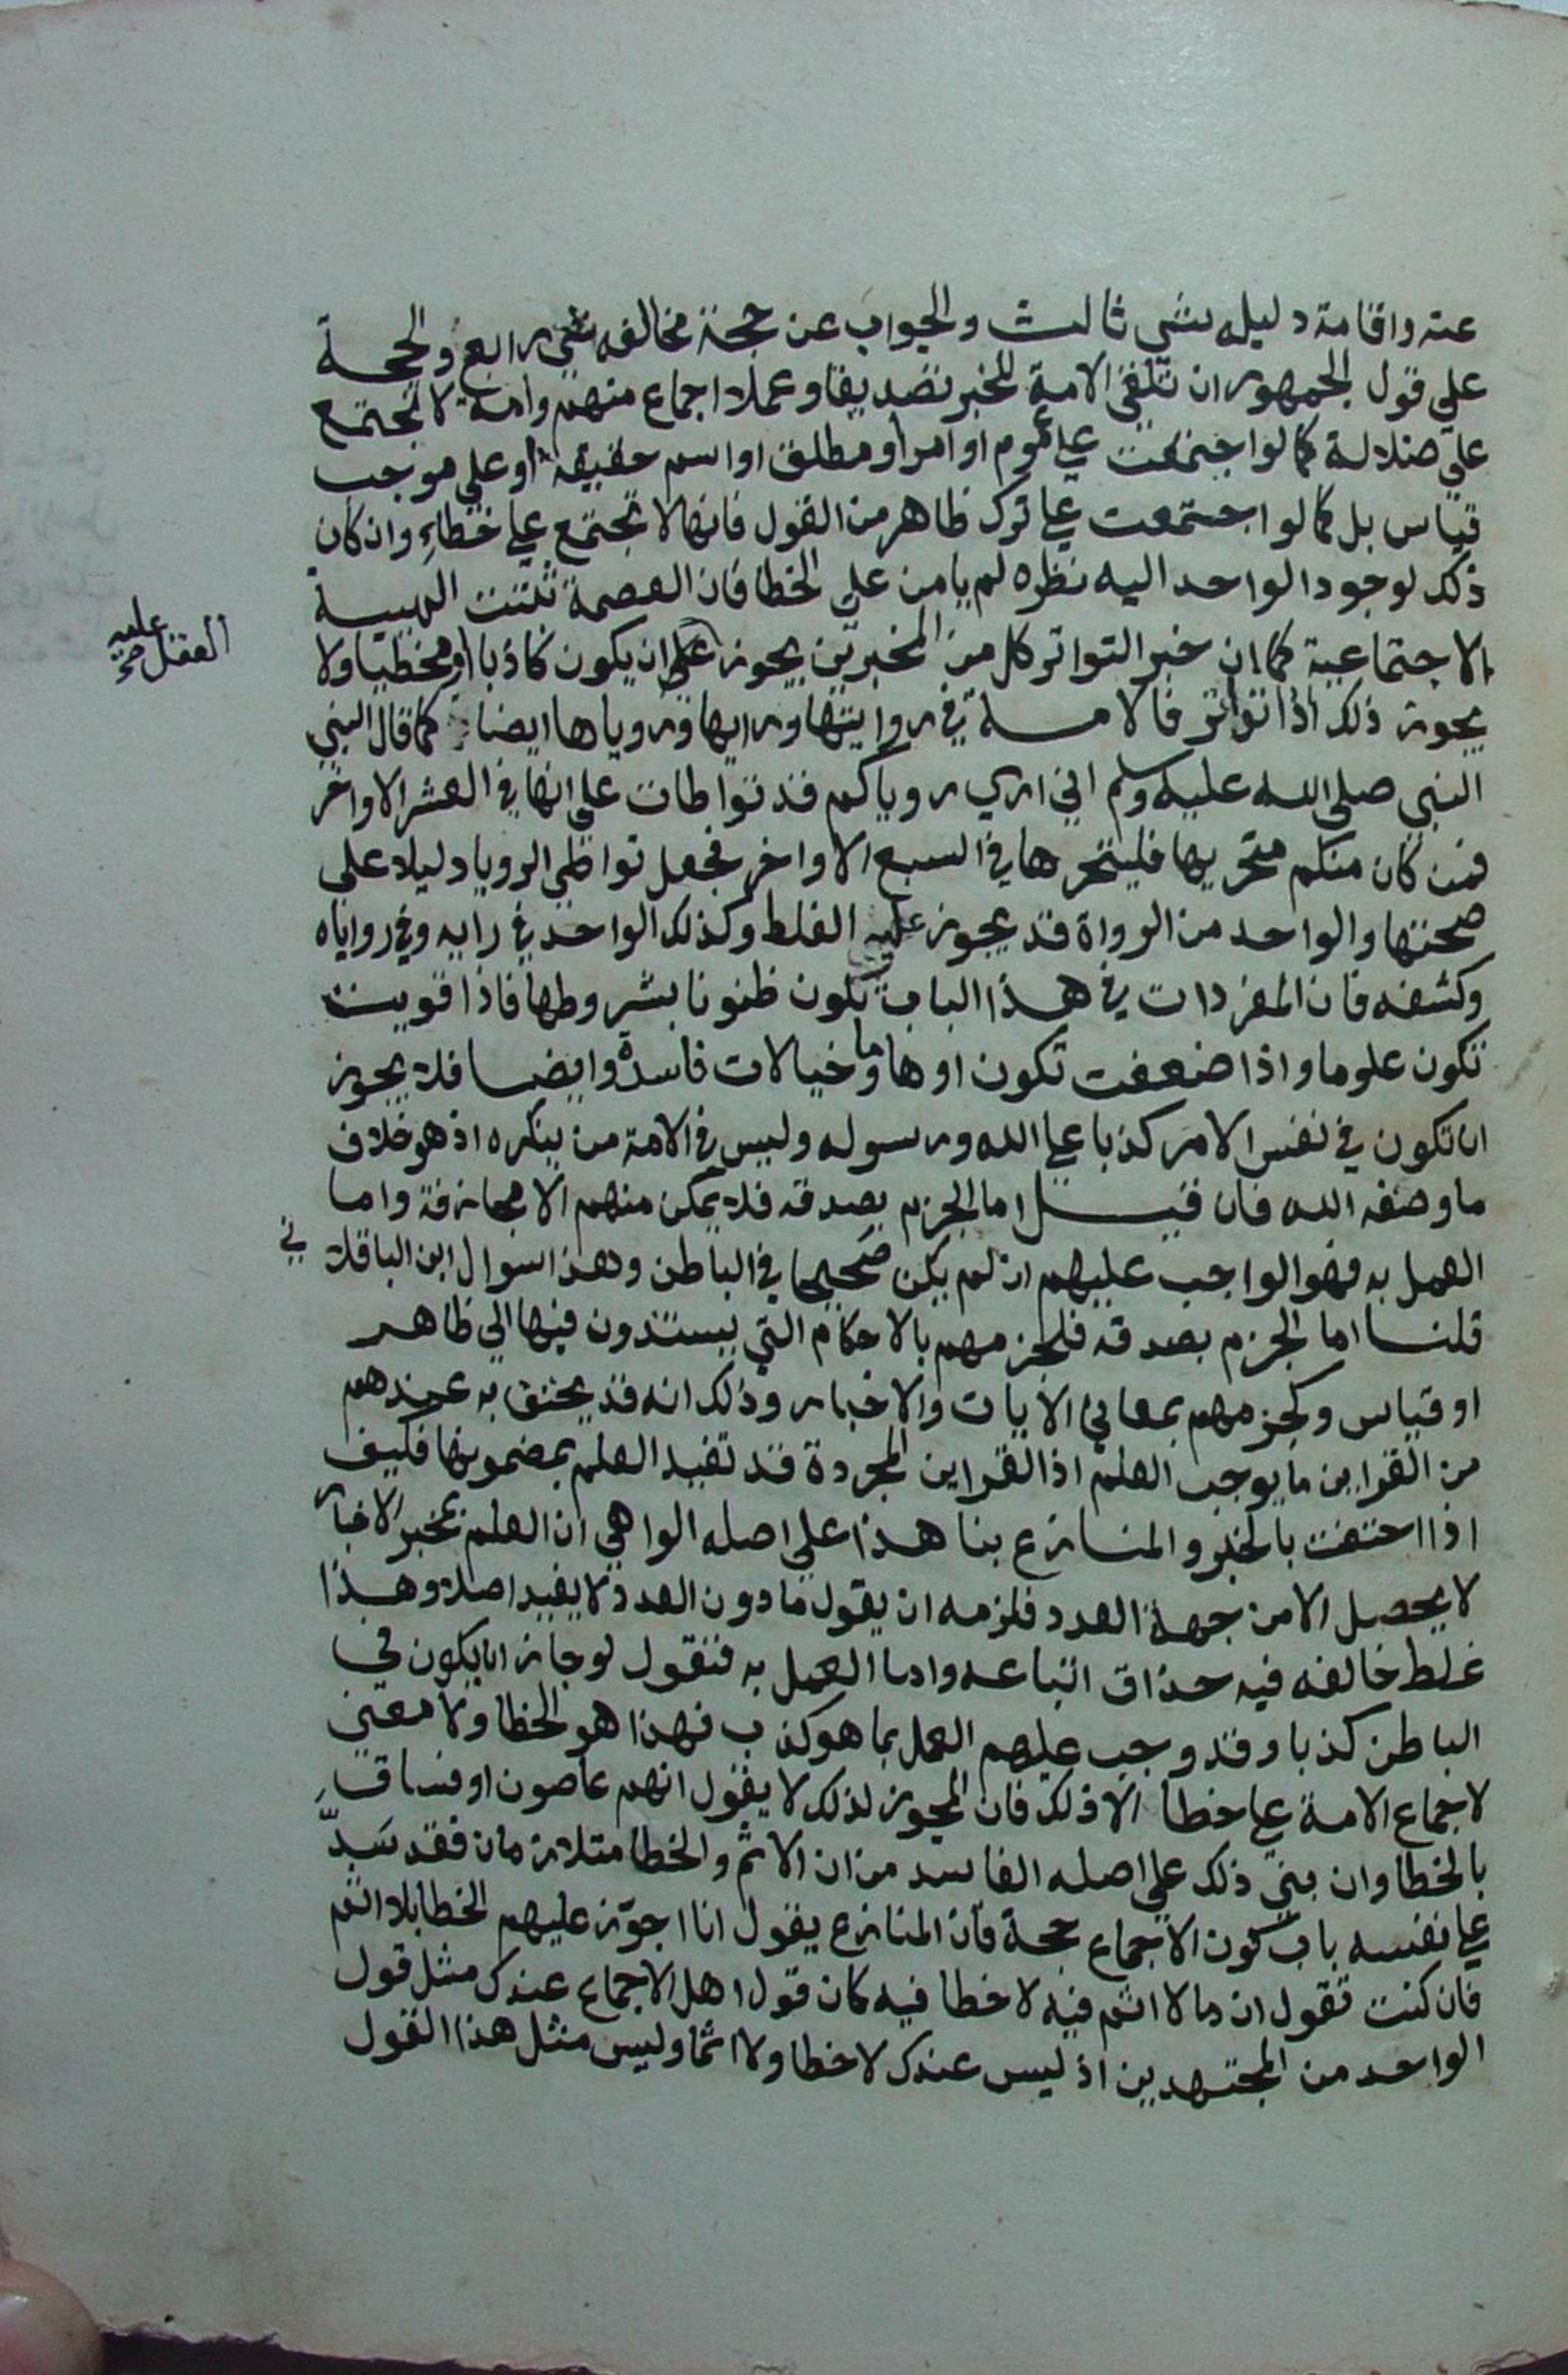 عنه واقامة دليله شي ثالث والجواب عن حجة مخالفه شي رابع والحجة
علي قول الجمهور ان تلقي الامة للخبر تصديقا وعملا اجماع منهم وامة لا تجتمع
علي ضلالة كما لو اجتمعت علي عموم او امر او مطلق او اسم حقيقة او علي موجب
قياس بل كما لو اجتمعت علي ترك ظاهر من القول فانها لا تجتمع علي خطاء وان كان
ذلك لو جود الواحد اليه نظره لم يامن علي الخطا فان العصمة تثبت الهيية
الاجتماعية كما ان خبر التواتر كل من المخبرين يجوز علي ان يكون كاذبا او مخطيا ولا
العقل عليه صح
يجوز ذلك اذا تواتر فالامة في روايتها ورايها وروياها ايضا كما قال النبي
النبي صلي الله عليه وسلم اني اري روياكم قد تواطات علي انها في العشر الاواخر
فمن كان منكم متحريها فليتحرها في السبع الاواخر فجعل تواطي الرويا دليلا علي
صحتها والواحد من الرواة قد يجوز عليه الغلط وكذلك الواحد في رايه وفي روياه
وكشفه فان المفردات في هذا الباب تكون ظنونا بشروطها فاذا قويت
تكون علوما واذا ضعفت تكون اوهاما وخيالات فاسدة وايضا فلا يجوز
ان تكون في نفس الامر كذبا علي الله ورسوله وليس في الامة من ينكره اذ هو خلاف
ما وصفه الله فان قيل اما الجزم بصدقه فلا يمكن منهم الا مجازفة واما
العمل به فهو الواجب عليهم ان لم يكن صحيحا في الباطن وهذا سوال ابن الباقلا ني
قلنا اما الجزم بصدقه فلجزمهم بالاحكام التي يستندون فيها الي ظاهر
او قياس وكجزمهم بمعاني الايات والاخبار وذلك انه قد يحتف به عندهم
من القراين ما يوجب العلم اذ القراين المجردة قد تفيد العلم بمضمونها فكيف
اذا احتفت بالخبر والمنازع بنا هذا علي اصله الواهي ان العلم بمخبر الاخبار
لا يحصل الا من جهة العدد فلزمه ان يقول ما دون العدد لا يفيد اصلا وهذا
غلط خالفه فيه حذاق اتباعه واما العمل به فنقول لو جاز ان يكون في
الباطن كذبا وقد وجب عليهم العمل بما هو كذب فهذا هو الخطا ولا معني
لاجماع الامة علي خطا الا ذلك فان المجوز لذلك لا يقول انهم عاصون او فساق
بالخطا وان بني ذلك علي اصله الفاسد من ان الاثم والخطا متلازمان فقد سد
علي نفسه باب كون الاجماع حجة فان المنازع يقول انا اجوز عليهم الخطا بلا اثم
فان كنت تقول ان ما لا اثم فيه لا خطا فيه كان قول اهل الاجماع عندك مثل قول
الواحد من المجتهدين اذ ليس عندك لا خطا ولا اثما وليس مثل هذا القول